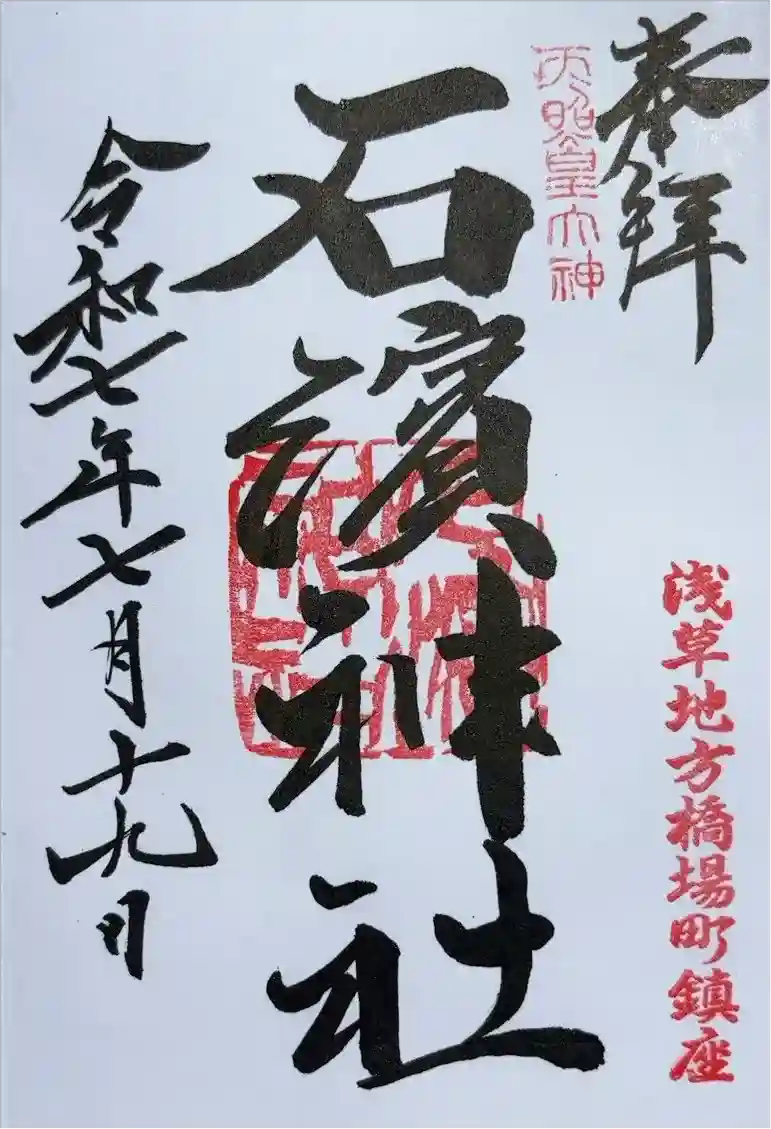 奉拝
浅草地方橋場町鎮座
天照皇大神
石濱神社
令和七年七月十九日